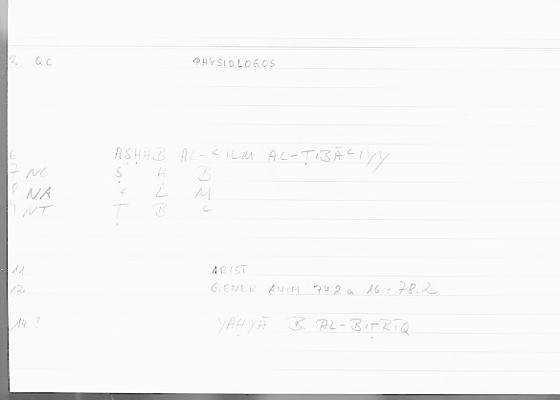 2 QC PHYSIOLOGOS
6 AṢḤĀB AL-ʿILM AL-ṬIBĀʿIYY
7 NC Ṣ Ḥ B
8 NA ʿ L M
9 NT Ṭ B ʿ
11 ARIST
12 GENER ANIM 742a 16 : 78.2
14 ? YAḤYĀ B AL-BIṬRĪQ